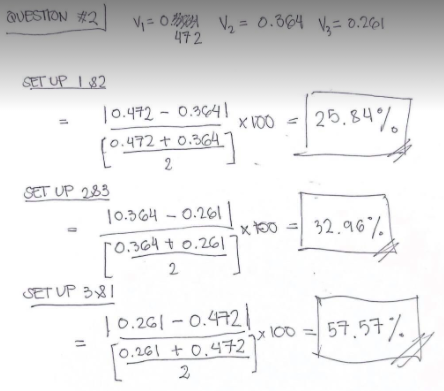 QUESTION #2 V₁ = 0.472 V₂ = 0.364 V₃ = 0.261
SET UP 1 & 2
= |0.472 - 0.364| / [0.472 + 0.364 / 2] x 100 = 25.84%
SET UP 2 & 3
= |0.364 - 0.261| / [0.364 + 0.261 / 2] x 100 = 32.96%
SET UP 3 & 1
= |0.261 - 0.472| / [0.261 + 0.472 / 2] x 100 = 57.57%